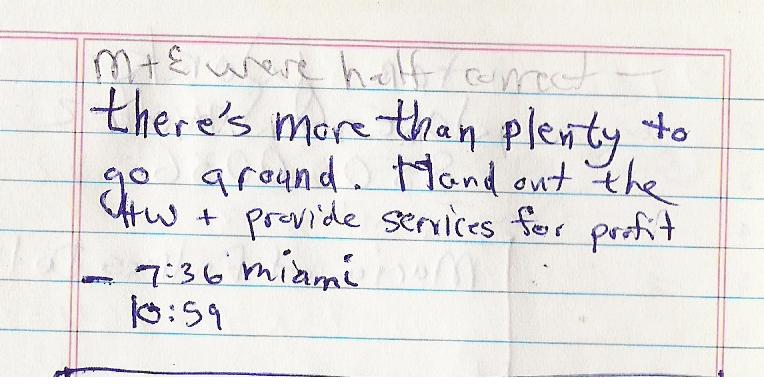 M+E were half correct —
there's more than plenty to
go around. Hand out the
HW + provide services for profit
- 7:36 miami
10:59